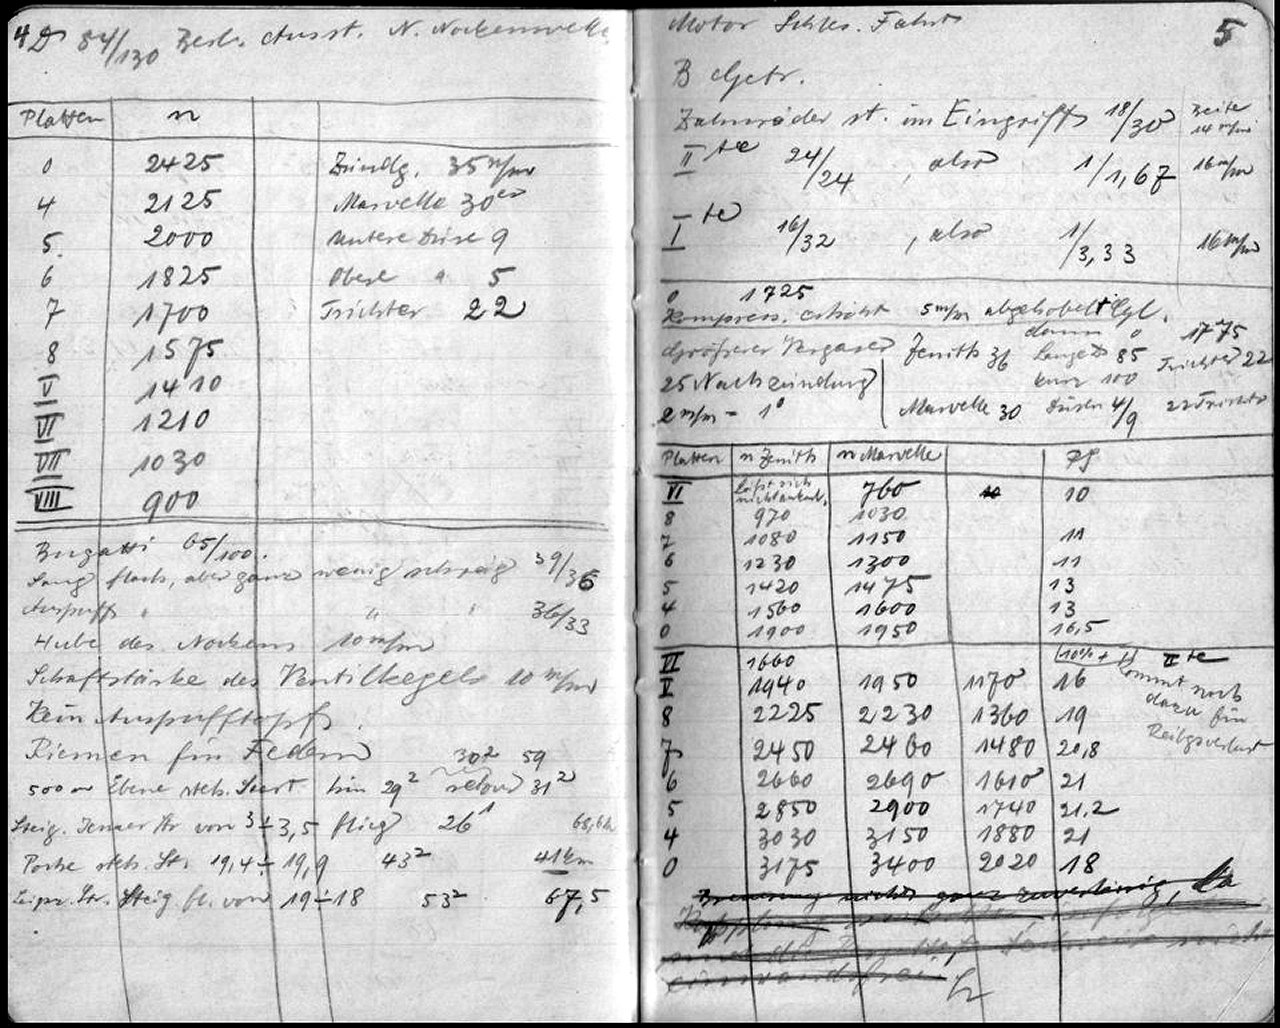 4 D 84/130 Berl. Ausst. N. Nockenwelle
Platten n
0 2425 Zündg. 35 m/m
4 2125 Marvelle 30er
5. 2000 untere Düse 9
6 1825 obere " 5
7 1700 Trichter 22
8 1575
V 1410
VI 1210
VII 1030
VIII 900
Bugatti 65/100.
Saug flach, aber ganz wenig schräg 39/36
Auspuff " " " 36/33
Hube des Nockens 10 m/m
Schaftstärke des Ventilkegels 10 m/m
Kein Auspufftopf.
Riemen für Federn 30² 59
500 m Ebene steh. Start hin 29² retour 31²
Steig. Jenaer Str von 3÷3,5 flieg 26¹ 68,6
steh. St. 19,4÷19,9 43² 41 km
Leipz. Str. Steig fl. von 19÷18 53² 67,5
5
Motor Schles. Fahrt
B Getr.
Zahnräder st. im Eingriff 18/30 Breite 14 m/m
IIte 24/24, also 1/1,67 16 m/m
Ite 16/32, also 1/3,33 16 m/m
0 1725
Kompress. erhöht 5 m/m abgehobelt Cyl.
dann 0 1775
Grösserer Vergaser Zenith 36 lange D 85 Trichter 22
25 Nachzündung kurz 100
2 m/m = 1° Marvelle 30 Düsen 4/9 22 Trichter
Platten n Zenith n Marvelle PS
VI läßt sich nicht 760 10 10
8 970 1030
7 1080 1150 11
6 1230 1300 11
5 1420 1475 13
4 1560 1600 13
0 1900 1950 16,5
VI 1660 10% + IIte
V 1940 1950 1170 16 kommt noch
8 2225 2230 1360 19 dazu für
7 2450 2460 1480 20,8 Reibgsverlust
6 2660 2690 1610 21
5 2850 2900 1740 21,2
4 3030 3150 1880 21
0 3175 3400 2020 18
Bremsung nicht ganz zuverlässig, da
einwandsfrei